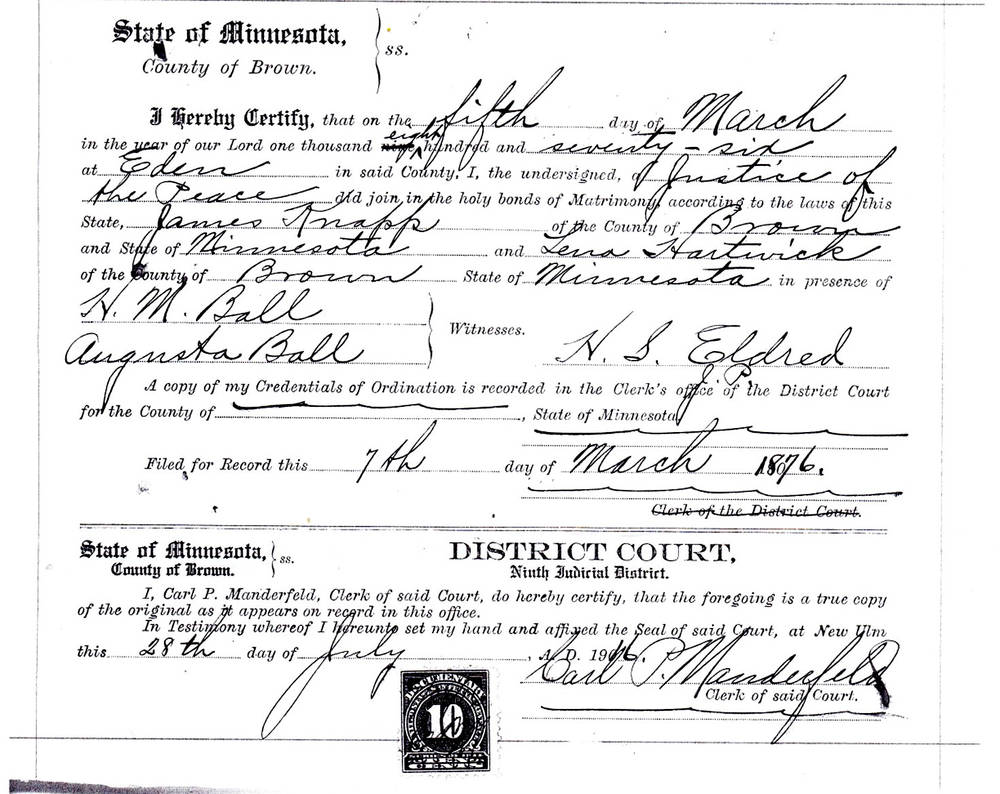 State of Minnesota,
County of Brown.
ss.
I Hereby Certify, that on the fifth day of March
in the year of our Lord one thousand nine eight hundred and seventy-six
at Eden in said County, I, the undersigned, a Justice of
the Peace did join in the holy bonds of Matrimony, according to the laws of this
State, James Knapp of the County of Brown
and State of Minnesota and Lena Hartwick
of the County of Brown State of Minnesota in presence of
H. M. Ball
Augusta Ball
Witnesses.
H. S. Eldred
J. P.
A copy of my Credentials of Ordination is recorded in the Clerk's office of the District Court
for the County of , State of Minnesota
Filed for Record this 7th day of March 1876.
Clerk of the District Court.
State of Minnesota,
County of Brown.
ss.
DISTRICT COURT,
Ninth Judicial District.
I, Carl P. Manderfeld, Clerk of said Court, do hereby certify, that the foregoing is a true copy
of the original as it appears on record in this office.
In Testimony whereof I hereunto set my hand and affixed the Seal of said Court, at New Ulm
this 28th day of July , A.D. 19
Carl P. Manderfeld
Clerk of said Court.
DOCUMENTARY
10